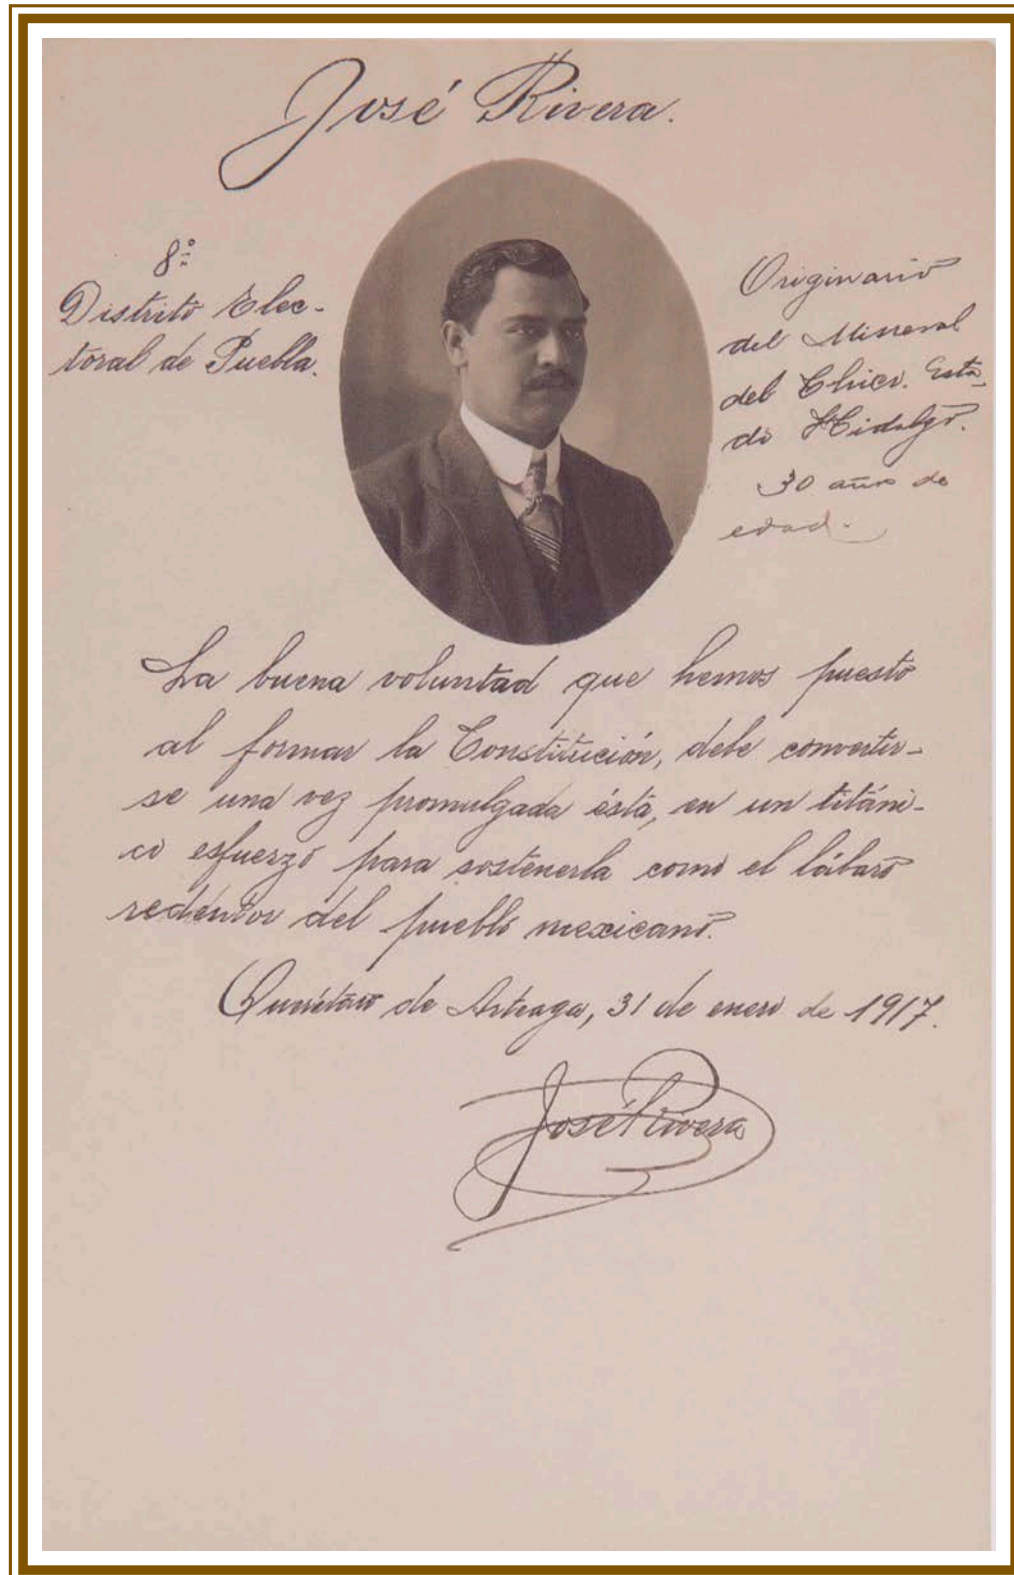 José Rivera.
8º
Distrito Elec-
toral de Puebla.
Originario
del Mineral
del Chico. Esta-
do Hidalgo.
30 años de
edad.
La buena voluntad que hemos puesto
al formar la Constitución, debe convertir-
se una vez promulgada ésta, en un titáni-
co esfuerzo para sostenerla como el lábaro
redentor del pueblo mexicano.
Querétaro de Arteaga, 31 de enero de 1917.
José Rivera